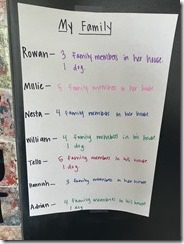 My Family
Rowan - 3 family members in her house.
1 dog.
Millie - 5 family members in her house.
Nesta - 4 family members in her house.
William - 4 family members in his house.
1 dog.
Tello - 5 family members in his house.
1 dog
Hannah - 3 family members in her house.
Adrian - 4 family members in his house.
1 dog